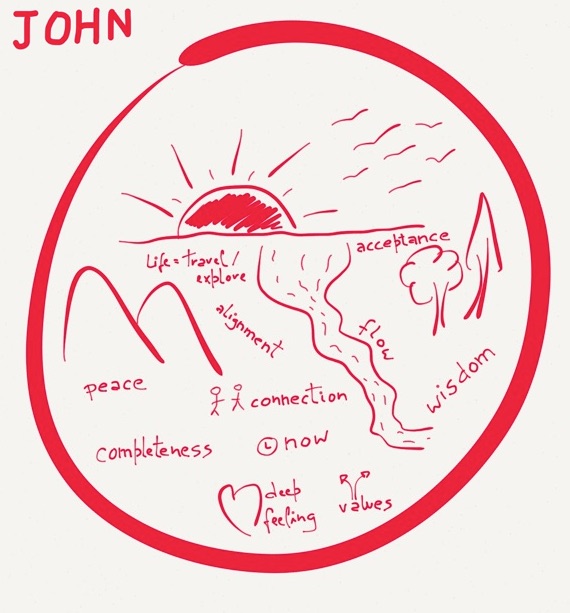 JOHN
acceptance
Life = travel /
explore
alignment
flow
wisdom
peace
connection
completeness
now
deep
feeling
values